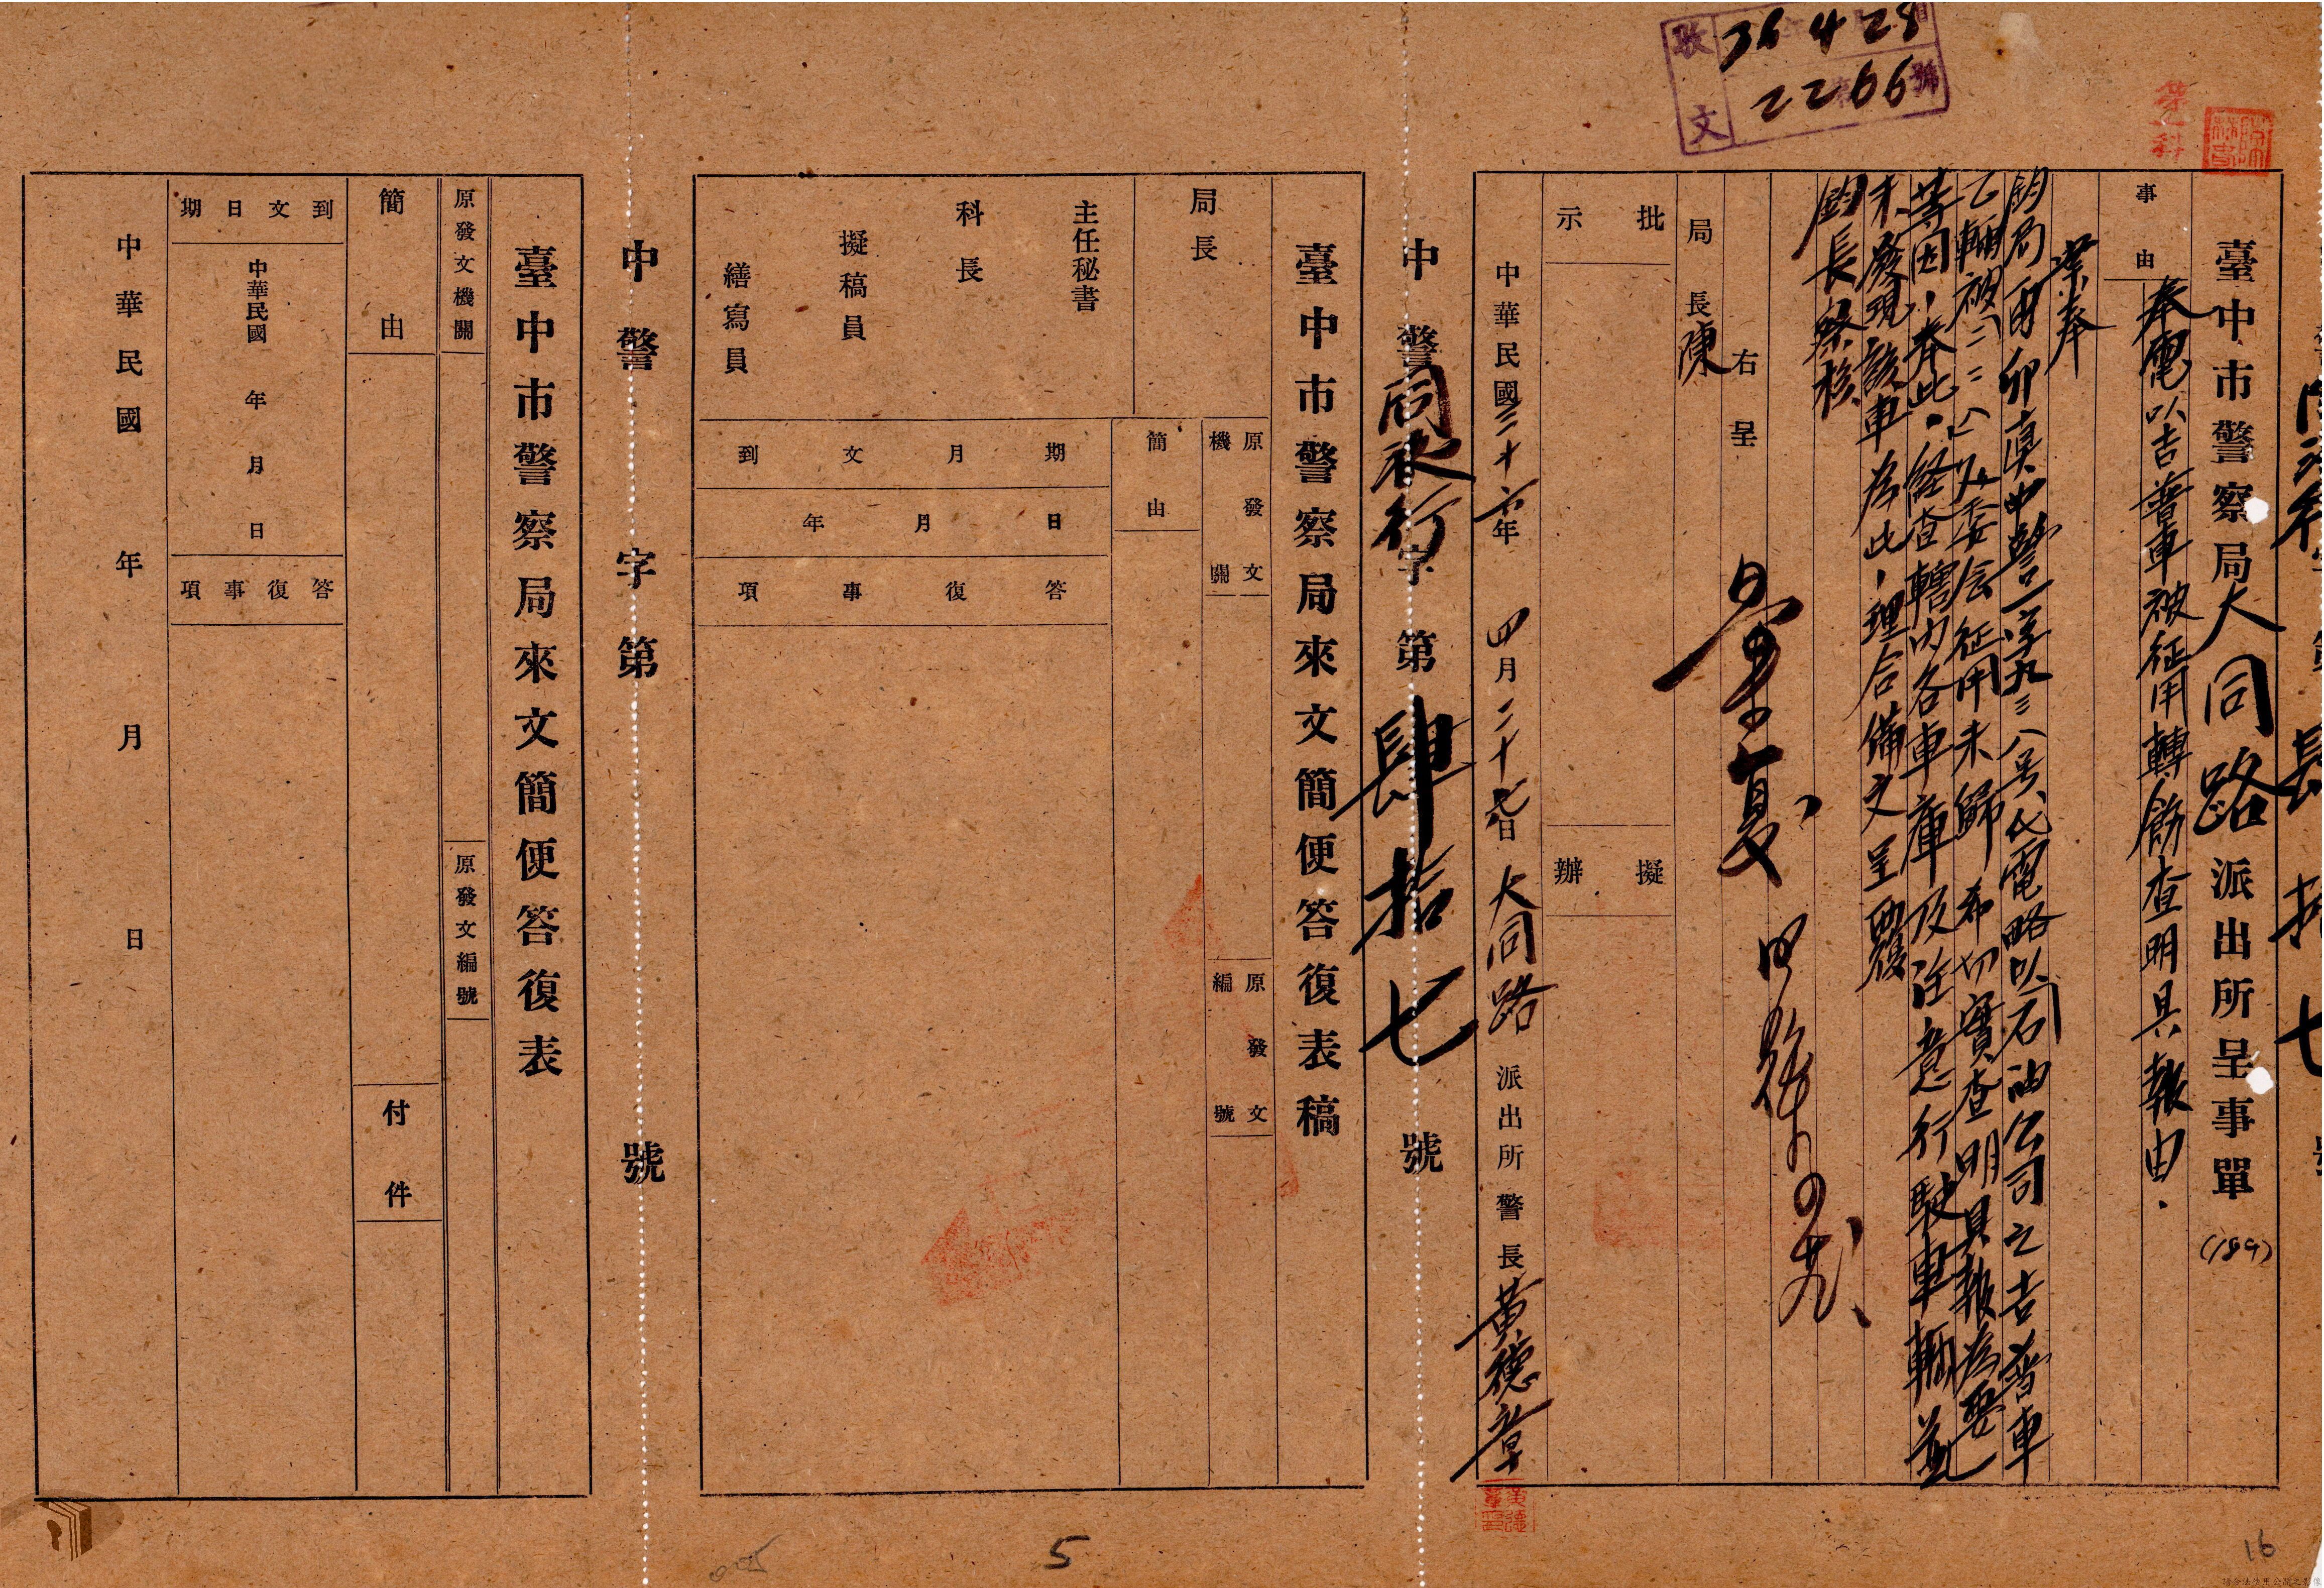 收文
36 4 28
2266
號
臺中市警察局大同路派出所呈事單(189)
事由
奉電以吉普車被征用轉飭查明具報由.
案奉
鈞局丑卯真中警一字九三八号代電略以石油公司之吉普車
乙輛被二二八處委会征用未歸希切實查明具報為要
等因,奉此.経查轄内各車庫及注意行駛車輛並
未發現該車為此,理合備文呈覆
鈞長察核
右呈
局長陳
批示
擬辦
中華民國三十六年四月二十七日大同路派出所警長黃德章
中警同衣行字第肆拾七號
臺中市警察局來文簡便答復表稿
原發文機關
原發文編號
簡由
局長
主任秘書
科長
擬稿員
繕寫員
到文月期
年月日
答復事項
中警字第號
臺中市警察局來文簡便答復表
原發文機關
原發文編號
簡由
付件
到文日期
中華民國年月日
答復事項
中華民國年月日
5
16